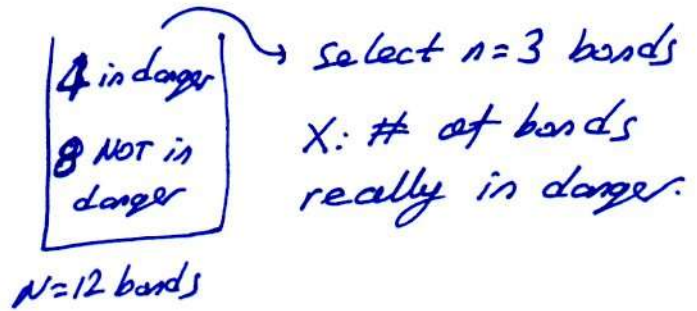 4 in danger
8 NOT in
danger
N=12 bonds
select n=3 bonds
X: # of bonds
really in danger.